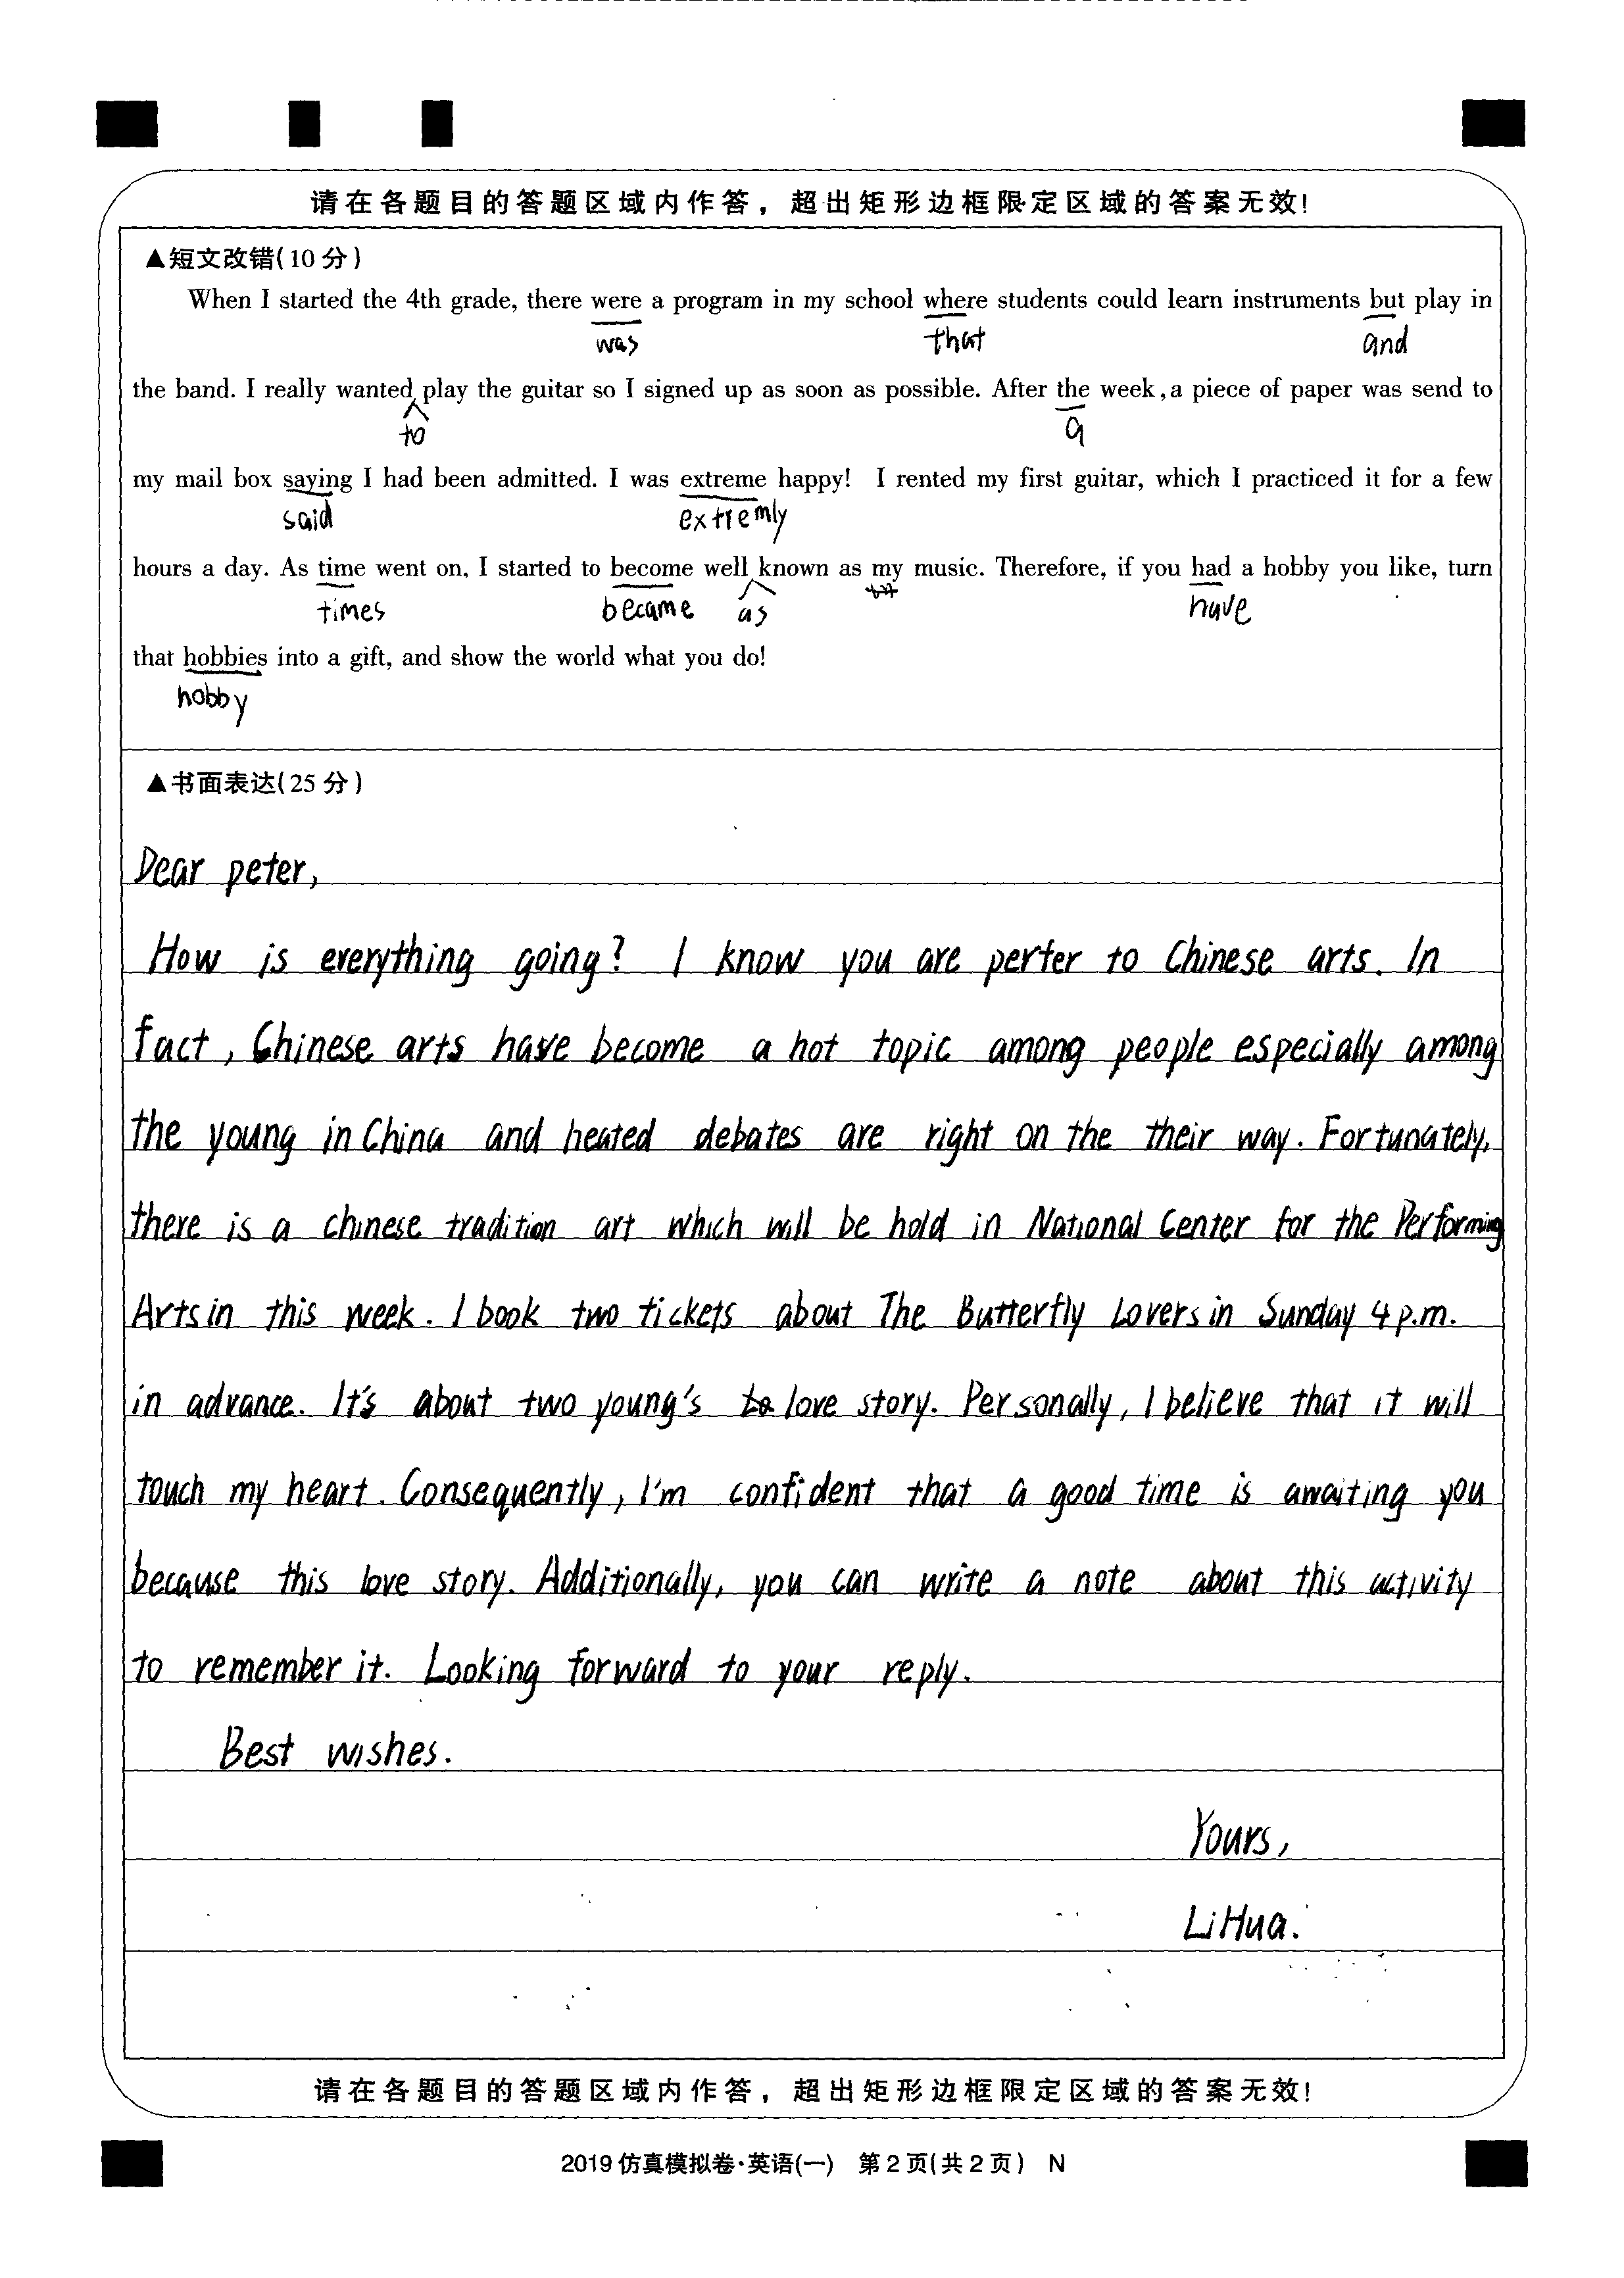 请在各题目的答题区域内作答，超出矩形边框限定区域的答案无效!
▲短文改错(10分)
When I started the 4th grade, there were a program in my school where students could learn instruments but play in
was that and
the band. I really wanted play the guitar so I signed up as soon as possible. After the week, a piece of paper was send to
to a
my mail box saying I had been admitted. I was extreme happy! I rented my first guitar, which I practiced it for a few
said extremly
hours a day. As time went on, I started to become well known as my music. Therefore, if you had a hobby you like, turn
times became as have
that hobbies into a gift, and show the world what you do!
hobby
▲书面表达(25分)
Dear peter,
How is everything going? I know you are perter to Chinese arts. In
fact, Chinese arts have become a hot topic among people especially among
the young in China and heated debates are right on the their way. Fortunately,
there is a chinese tradition art which will be hold in National Center for the Performing
Arts in this week. I book two tickets about The Butterfly Lovers in Sunday 4 p.m.
in advance. It's about two young's love story. Personally, I believe that it will
touch my heart. Consequently, I'm confident that a good time is awaiting you
because this love story. Additionally, you can write a note about this activity
to remember it. Looking forward to your reply.
Best wishes.
Yours,
Li Hua.
请在各题目的答题区域内作答，超出矩形边框限定区域的答案无效!
2019仿真模拟卷·英语(一) 第2页(共2页) N